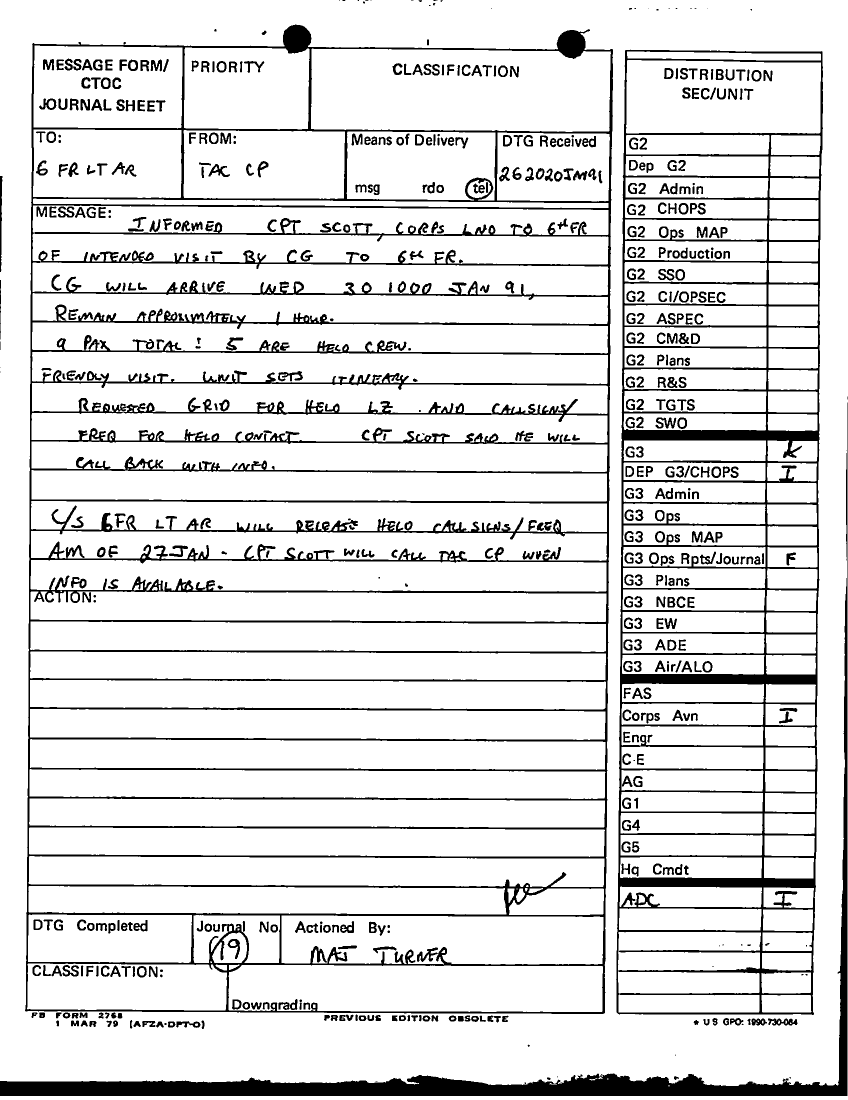 MESSAGE FORM/
CTOC
JOURNAL SHEET
PRIORITY
CLASSIFICATION
TO:
6 FR LT AR
FROM:
TAC CP
Means of Delivery
msg rdo tel
DTG Received
262020JAN91
MESSAGE:
INFORMED CPT SCOTT, CORPS LNO TO 6th FR
OF INTENDED VISIT BY CG TO 6th FR.
CG WILL ARRIVE WED 30 1000 JAN 91,
REMAIN APPROXIMATELY 1 HOUR.
9 PAX TOTAL! 5 ARE HELO CREW.
FRIENDLY VISIT. UNIT SETS ITINEARY.
REQUESTED GRID FOR HELO LZ. AND CALLSIGNS/
FREQ FOR HELO CONTACT. CPT SCOTT SAID HE WILL
CALL BACK WITH INFO.
C/S 6FR LT AR WILL RELEASE HELO CALLSIGNS/FREQ
AM OF 27 JAN - CPT SCOTT WILL CALL TAC CP WHEN
INFO IS AVAILABLE.
ACTION:
DTG Completed
Journal No
19
Actioned By:
MAJ TURNER
CLASSIFICATION:
Downgrading
FB FORM 2768
1 MAR 79 (AFZA-DPT-O)
PREVIOUS EDITION OBSOLETE
DISTRIBUTION
SEC/UNIT
G2
Dep G2
G2 Admin
G2 CHOPS
G2 Ops MAP
G2 Production
G2 SSO
G2 CI/OPSEC
G2 ASPEC
G2 CM&D
G2 Plans
G2 R&S
G2 TGTS
G2 SWO
G3
DEP G3/CHOPS I
G3 Admin
G3 Ops
G3 Ops MAP
G3 Ops Rpts/Journal F
G3 Plans
G3 NBCE
G3 EW
G3 ADE
G3 Air/ALO
FAS
Corps Avn I
Engr
C-E
AG
G1
G4
G5
Hq Cmdt
ADC I
* US GPO: 1990-730-084